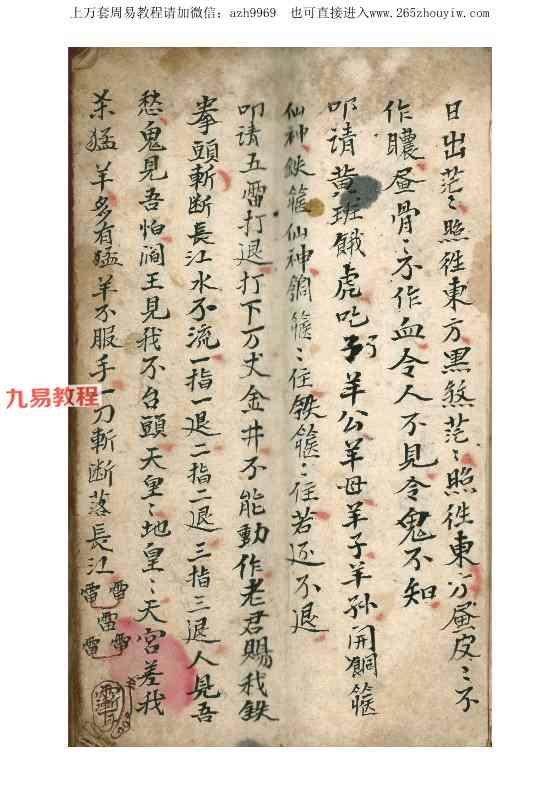 上万套周易教程请加微信：azh9969　也可直接进入www.265zhouyiw.com
日出茫〻照徃東方黒煞茫〻照徃東方屠皮〻不
作膿屠骨〻不作血令人不見令鬼不知
叩请黄班餓虎吃羊公羊母羊子羊孙開銅箍
仙神鉄箍仙神銅箍〻住鉄箍〻住若还不退
叩请五雷打退打下万丈金井不能動作老君賜我鉄
拳頭斬断長江水不流一指一退二指二退三指三退人見吾
愁鬼見吾怕王見我不台頭天皇〻地皇〻天宮差我
杀猛羊多有猛羊不服手一刀斬断落長江
雷雷雷雷雷
九易教程